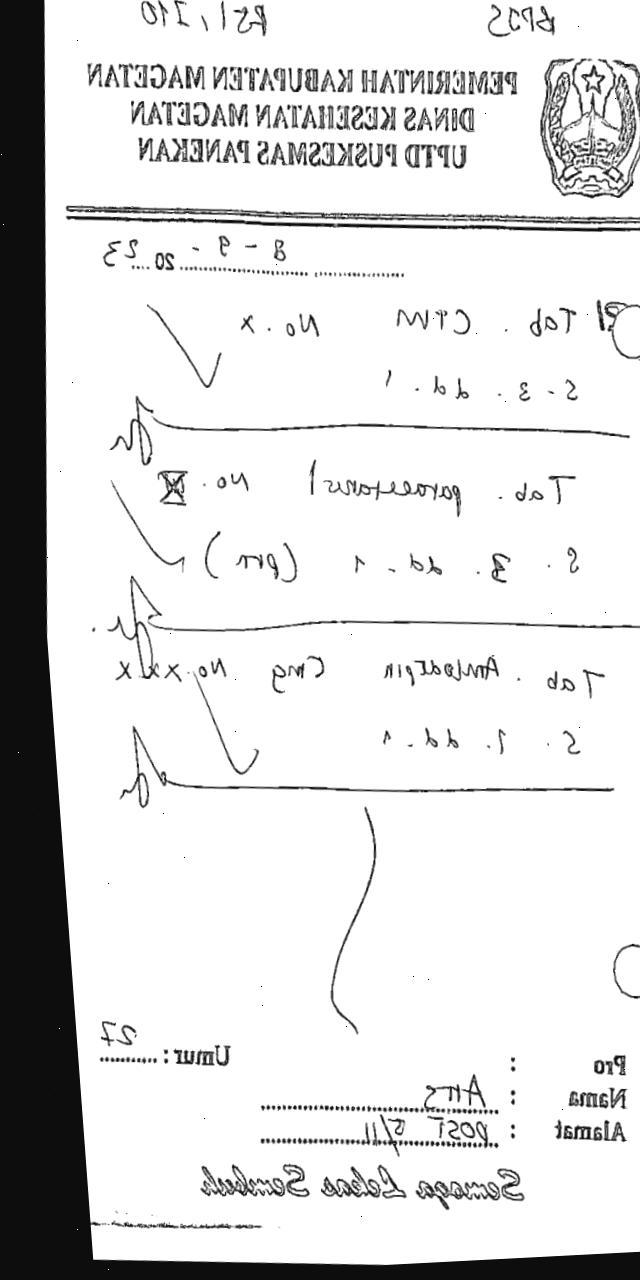 BPJS
PEMERINTAH KABUPATEN MAGETAN
DINAS KESEHATAN MAGETAN
UPTD PUSKESMAS PANEKAN
8 - 9 - 20 23
R/ Tab. CTM No. X
S. 3. dd. 1
Tab. paracetamol No.
S. 3. dd. 1 (prn)
Tab. Amlodipin No. XXX
S. 1. dd. 1
Pro : Umur : 27
Nama :
Alamat : POST
Semoga Lekas Sembuh